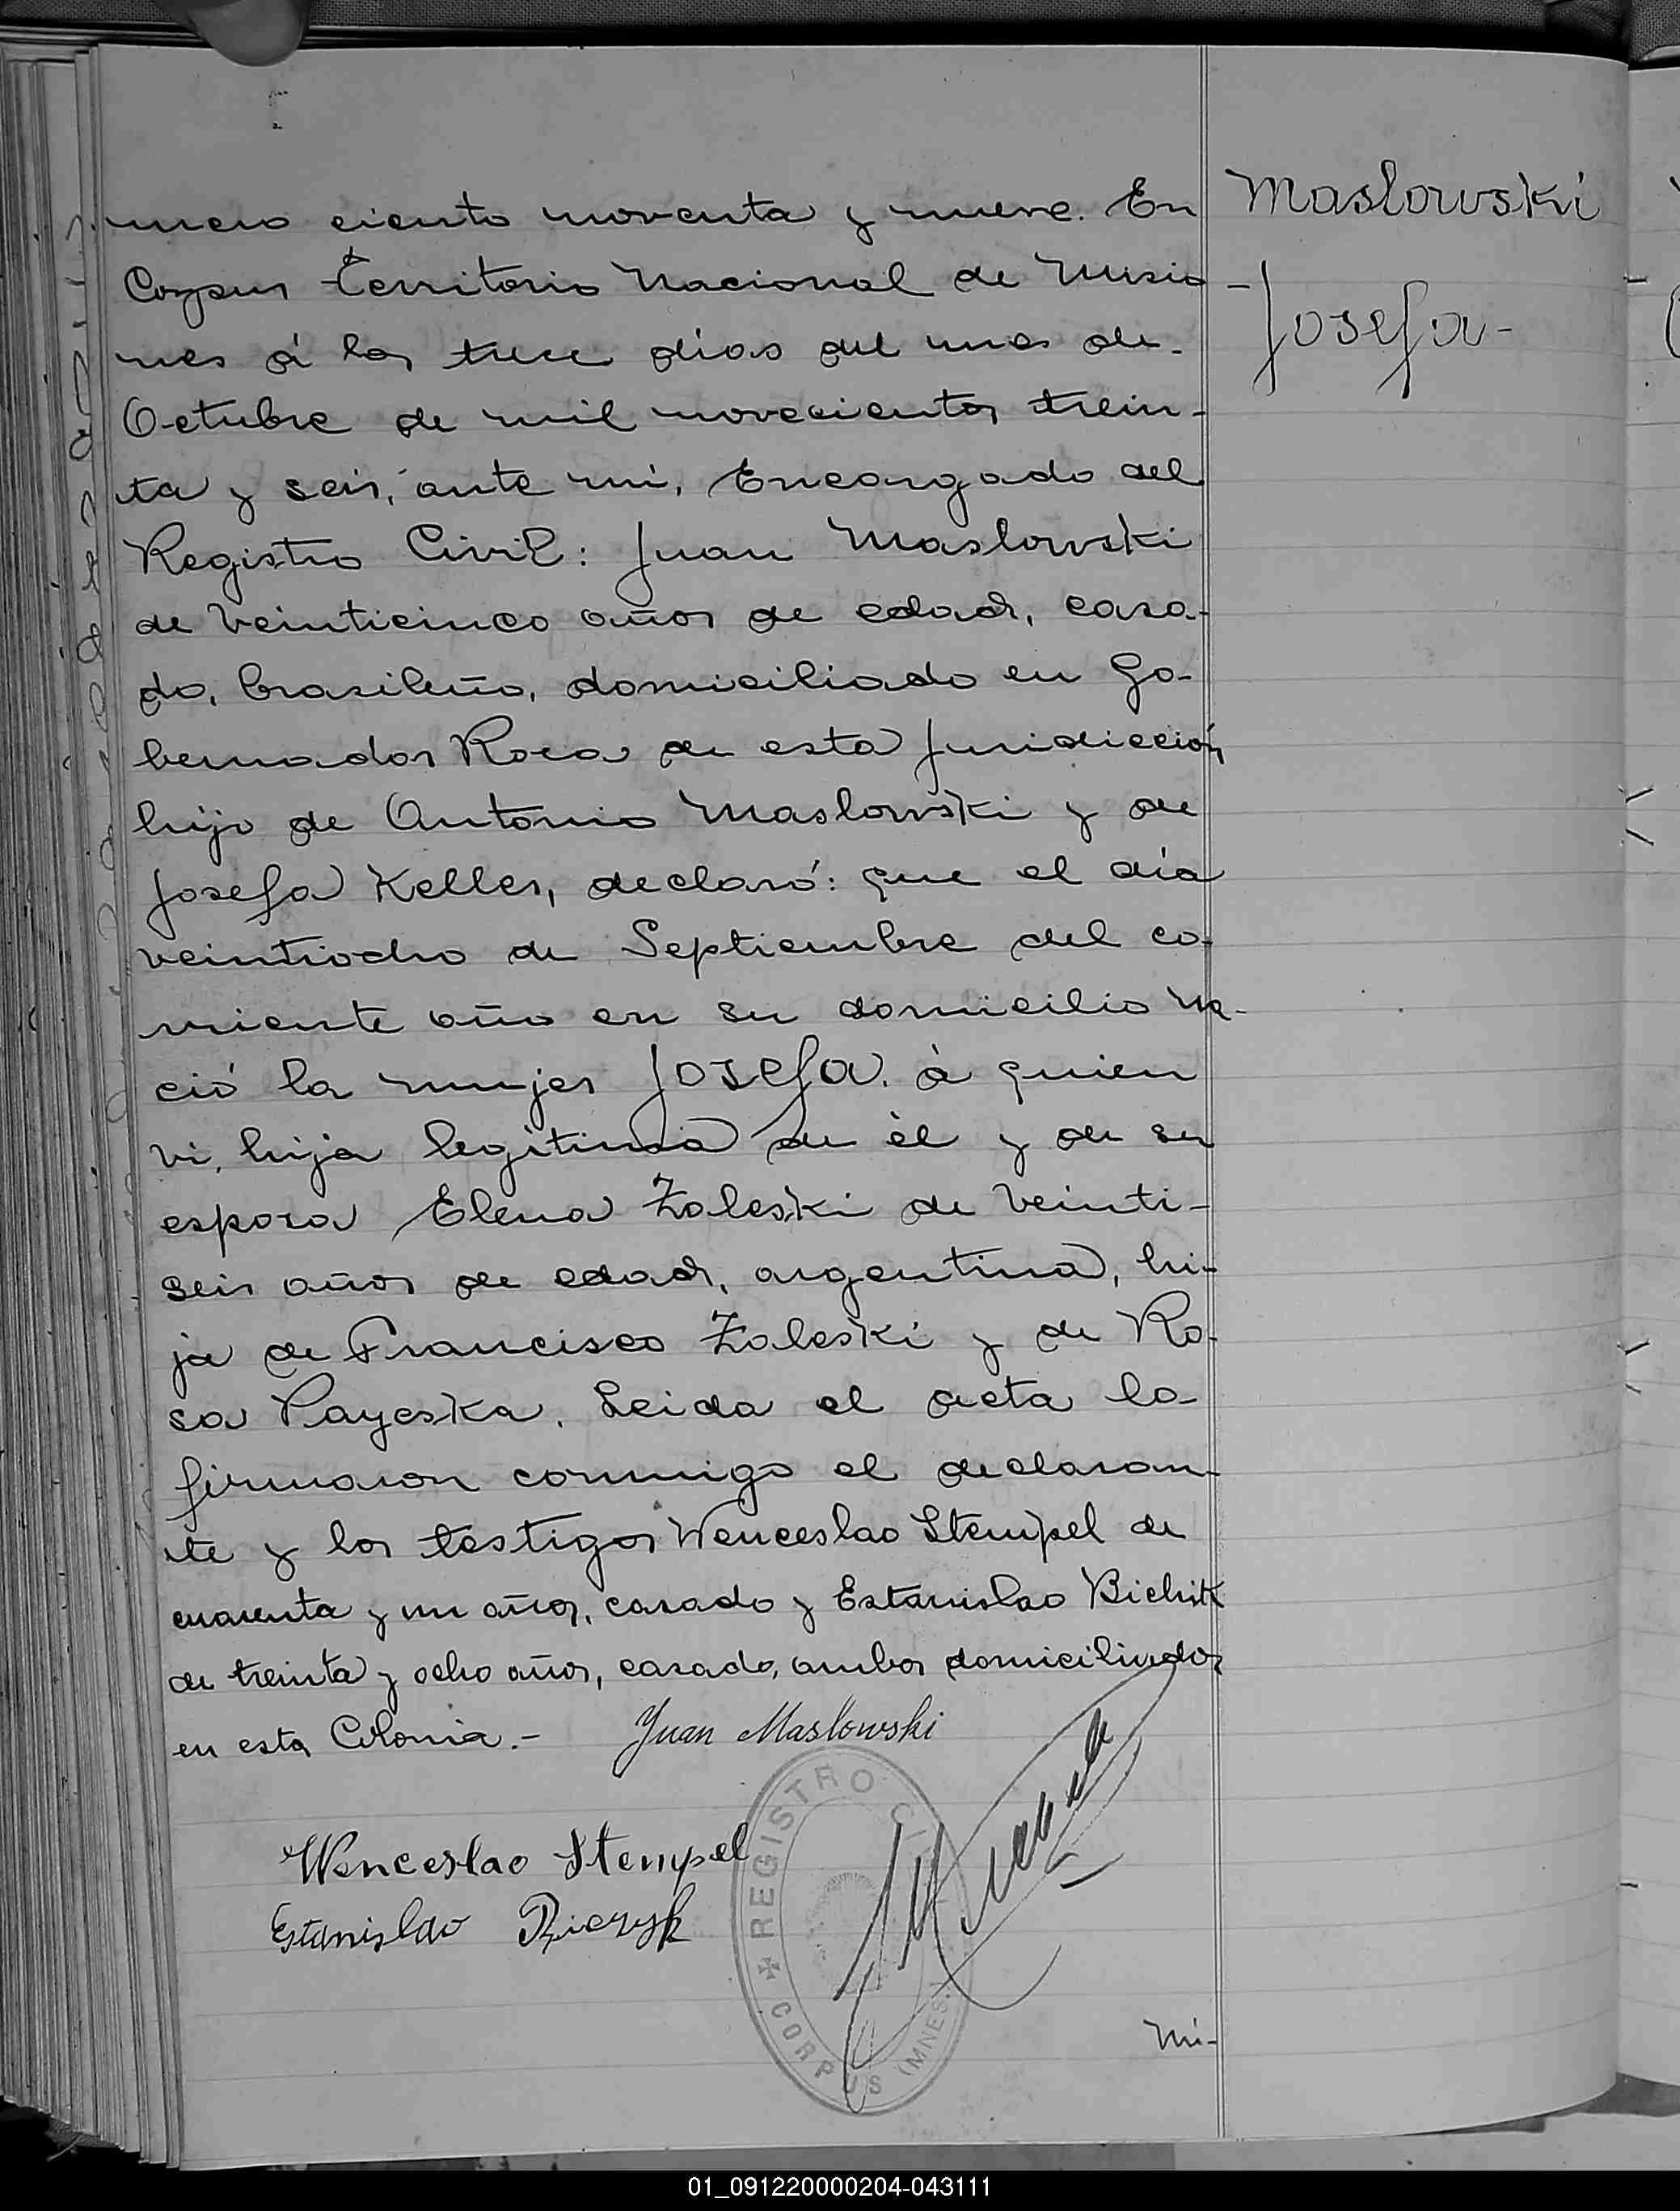 mero ciento noventa y nueve. En
Corpus Territorio Nacional de Misio
nes á los trece dias del mes de-
Octubre de mil novecientos trein-
ta y seis, ante mí, Encargado del
Registro Civil: Juan Maslowski
de veinticinco años de edad, casa-
do, brasileño, domiciliado en Go-
bernador Roca de esta jurisdicción
hijo de Antonio Maslowski y de
Josefa Keller, declaró: que el día
veintiocho de Septiembre del co-
rriente año en su domicilio na-
ció la mujer Josefa. á quien
vi, hija legitima de él y de su
esposa Elena Zaleski de veinti-
seis años de edad, argentina, hi-
ja de Francisco Zaleski y de Ro-
sa Payeska. Leida el acta la-
firmaron conmigo el declaran-
te y los testigos Wenceslao Stempel de
cuarenta y un años, casado y Estanislao
de treinta y ocho años, casado, ambos domiciliados
en esta Colonia.- Juan Maslowski
Wenceslao Stempel
Estanislao
REGISTRO CIVIL
CORPUS (MNES.)
Mi-
Maslowski
-Josefa-
01_091220000204-043111